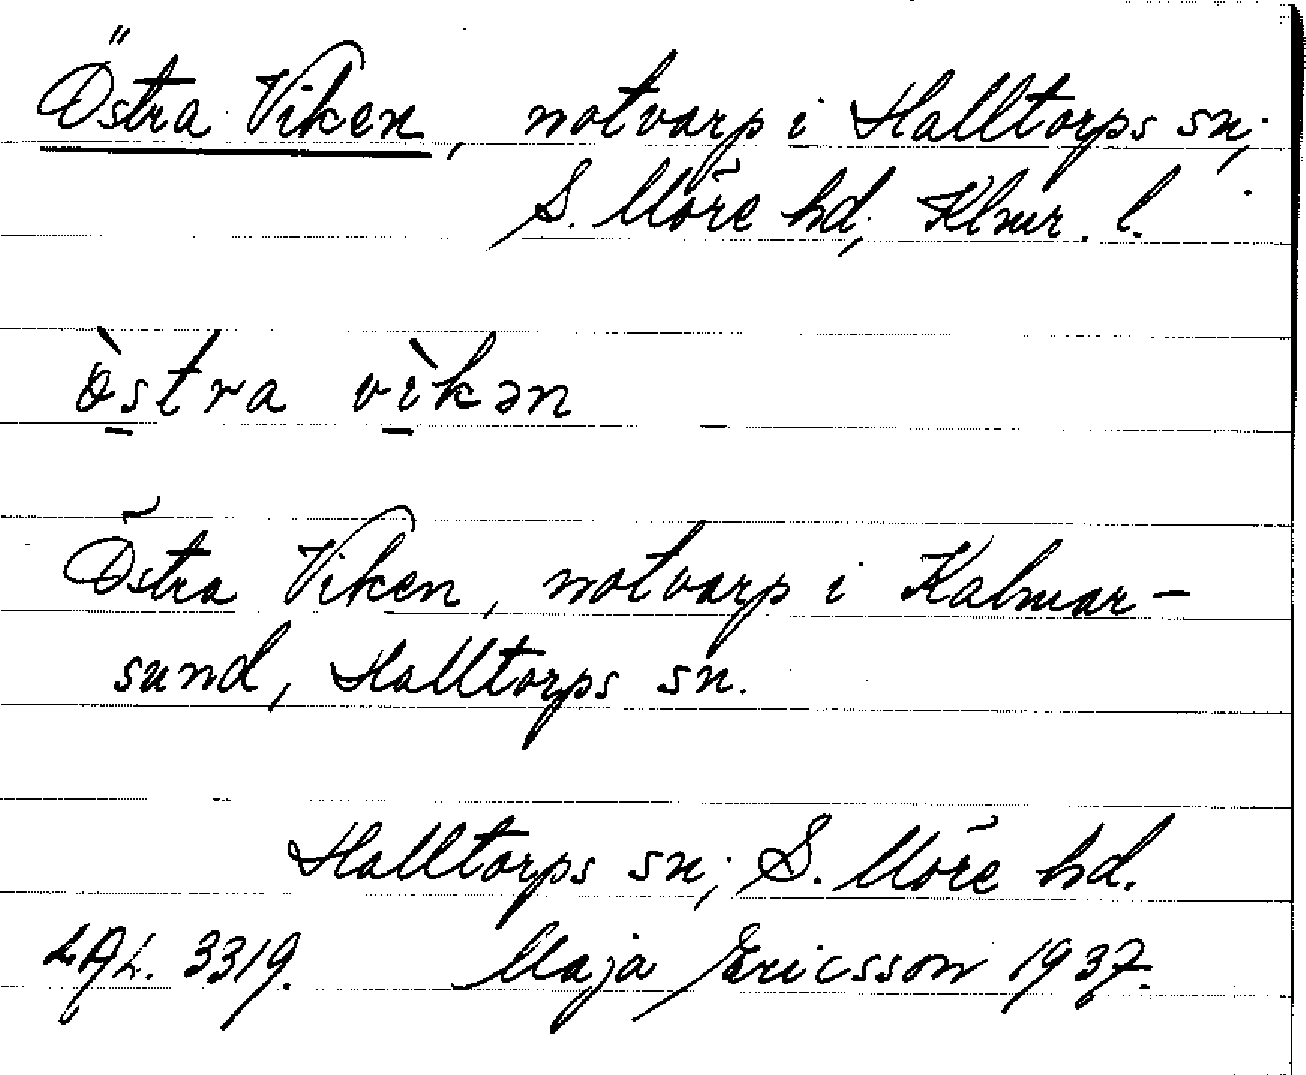 Östra Viken, notvarp i Halltorps sn;
S. Möre hd, Klmr. l.
östra vìkən
Östra Viken, notvarp i Kalmar-
sund, Halltorps sn.
Halltorps sn; S. Möre hd.
LAL. 3319. Maja Ericsson 1937.